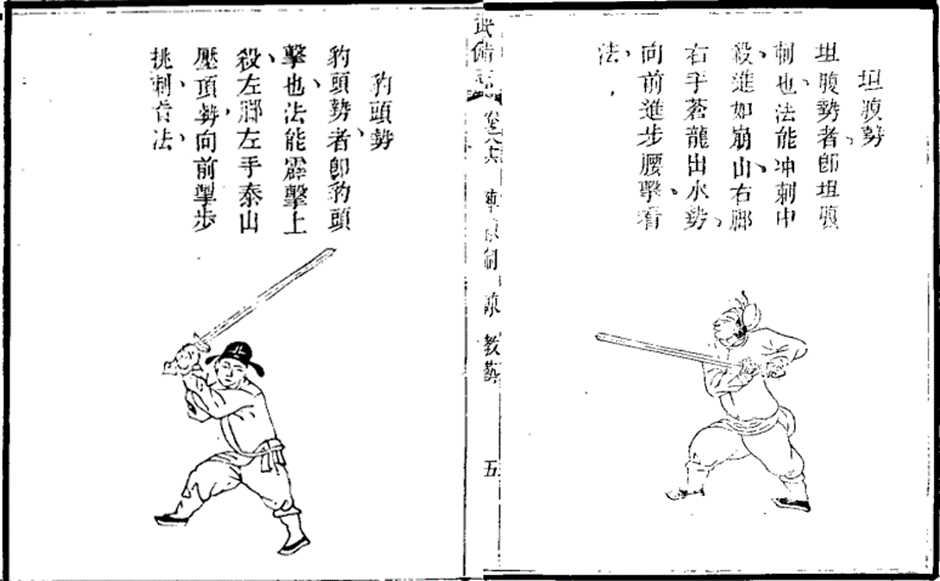 坦腹勢
坦腹勢者卽坦腹
刺也法能冲刺中
殺進如崩山右脚
右手蒼龍出水勢
向前進步腰擊看
法
武備志 卷八六 陣練制 練 教藝 五
豹頭勢
豹頭勢者卽豹頭
擊也法能霹擊上
殺左脚左手泰山
壓頂勢向前掣步
挑刺看法